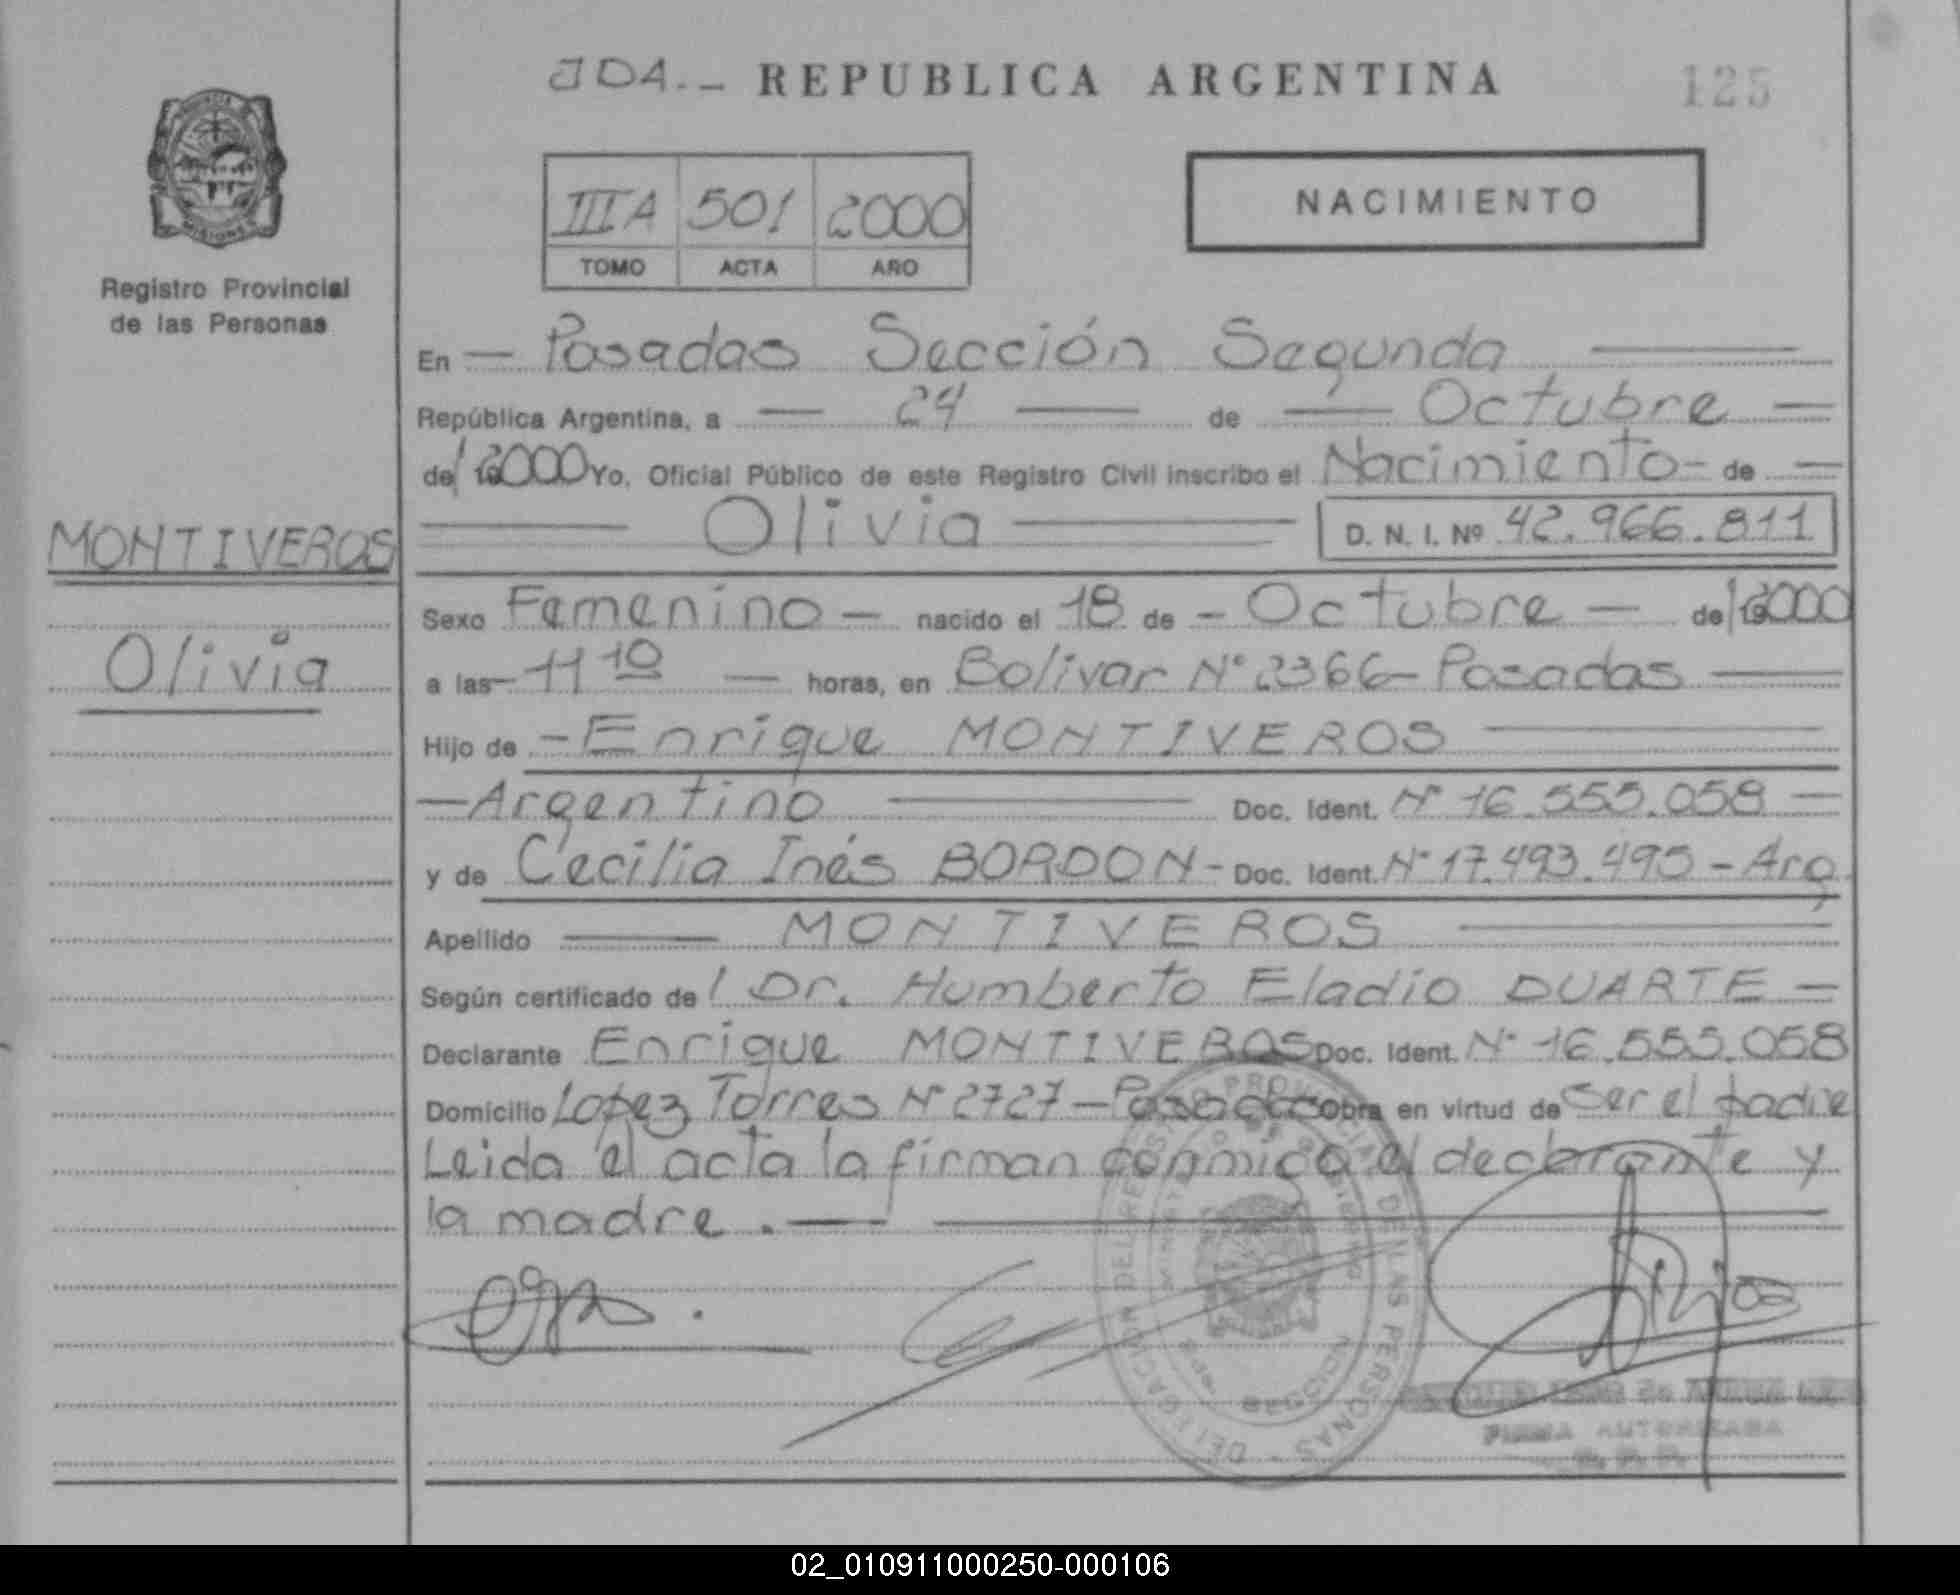 JDA.- REPUBLICA ARGENTINA 125
MISIONES
Registro Provincial
de las Personas
III A 501 2000
TOMO ACTA AÑO
NACIMIENTO
En — Posadas Sección Segunda —
República Argentina, a — 24 — de — Octubre —
de/ 2000 Yo, Oficial Público de este Registro Civil inscribo el Nacimiento - de —
MONTIVEROS
Olivia
— Olivia — D. N. I. Nº 42.966.811
Sexo Femenino — nacido el 18 de - Octubre — de/ 2000
a las - 11 10 — horas, en Bolivar Nº 2366 - Posadas —
Hijo de - Enrique MONTIVEROS —
— Argentino — Doc. Ident. Nº 16.555.058 —
y de Cecilia Inés BORDON - Doc. Ident. Nº 17.493.495 - Arg.
Apellido — MONTIVEROS —
Según certificado de/ Dr. Humberto Eladio DUARTE —
Declarante Enrique MONTIVEROS Doc. Ident. Nº 16.555.058
Domicilio Lopez Torres Nº 2727 - Posadas Obra en virtud de ser el padre
Leida el acta la firman conmigo el declarante y
la madre. —
DELEGACION DEL REGISTRO PROVINCIAL DE LAS PERSONAS
MINISTERIO DE GOBIERNO
MISIONES
FIRMA AUTORIZADA
02_010911000250-000106